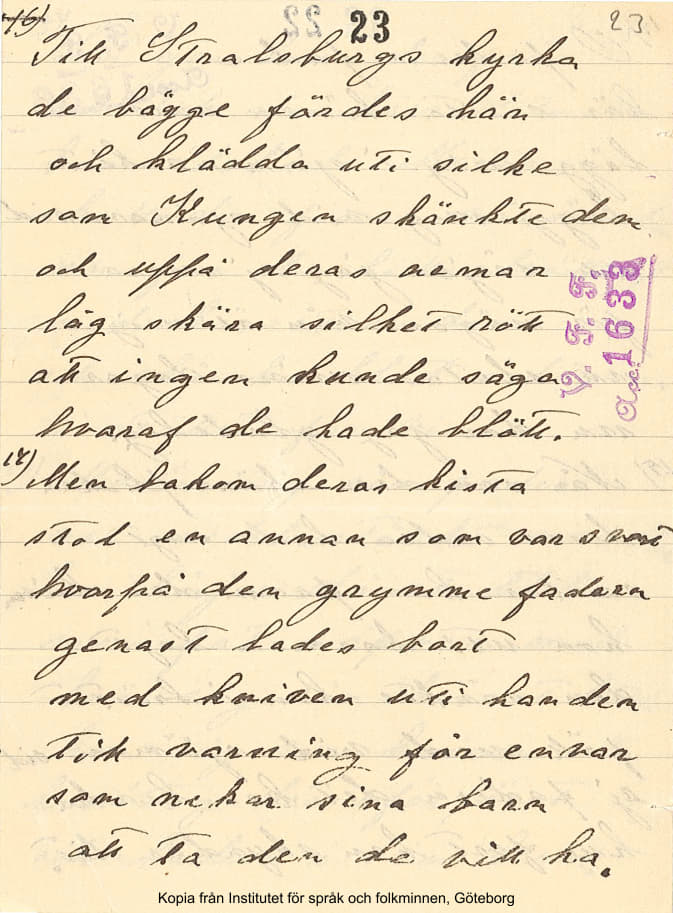 23
23
16)
Till Stralsburgs kyrka
de bägge fördes hän
och klädda uti silke
som Kungen skänkte dem
och uppå deras armar
låg skära silket rött
att ingen kunde säga
hvaraf de hade blött.
17)
Men bakom deras kista
stod en annan som var svart
hvarpå den grymme fadern
genast lades bort
med kniven uti handen
till varning för envar
som nekar sina barn
att ta den de vill ha.
V. F. F.
Acc. 1633
Kopia från Institutet för språk och folkminnen, Göteborg